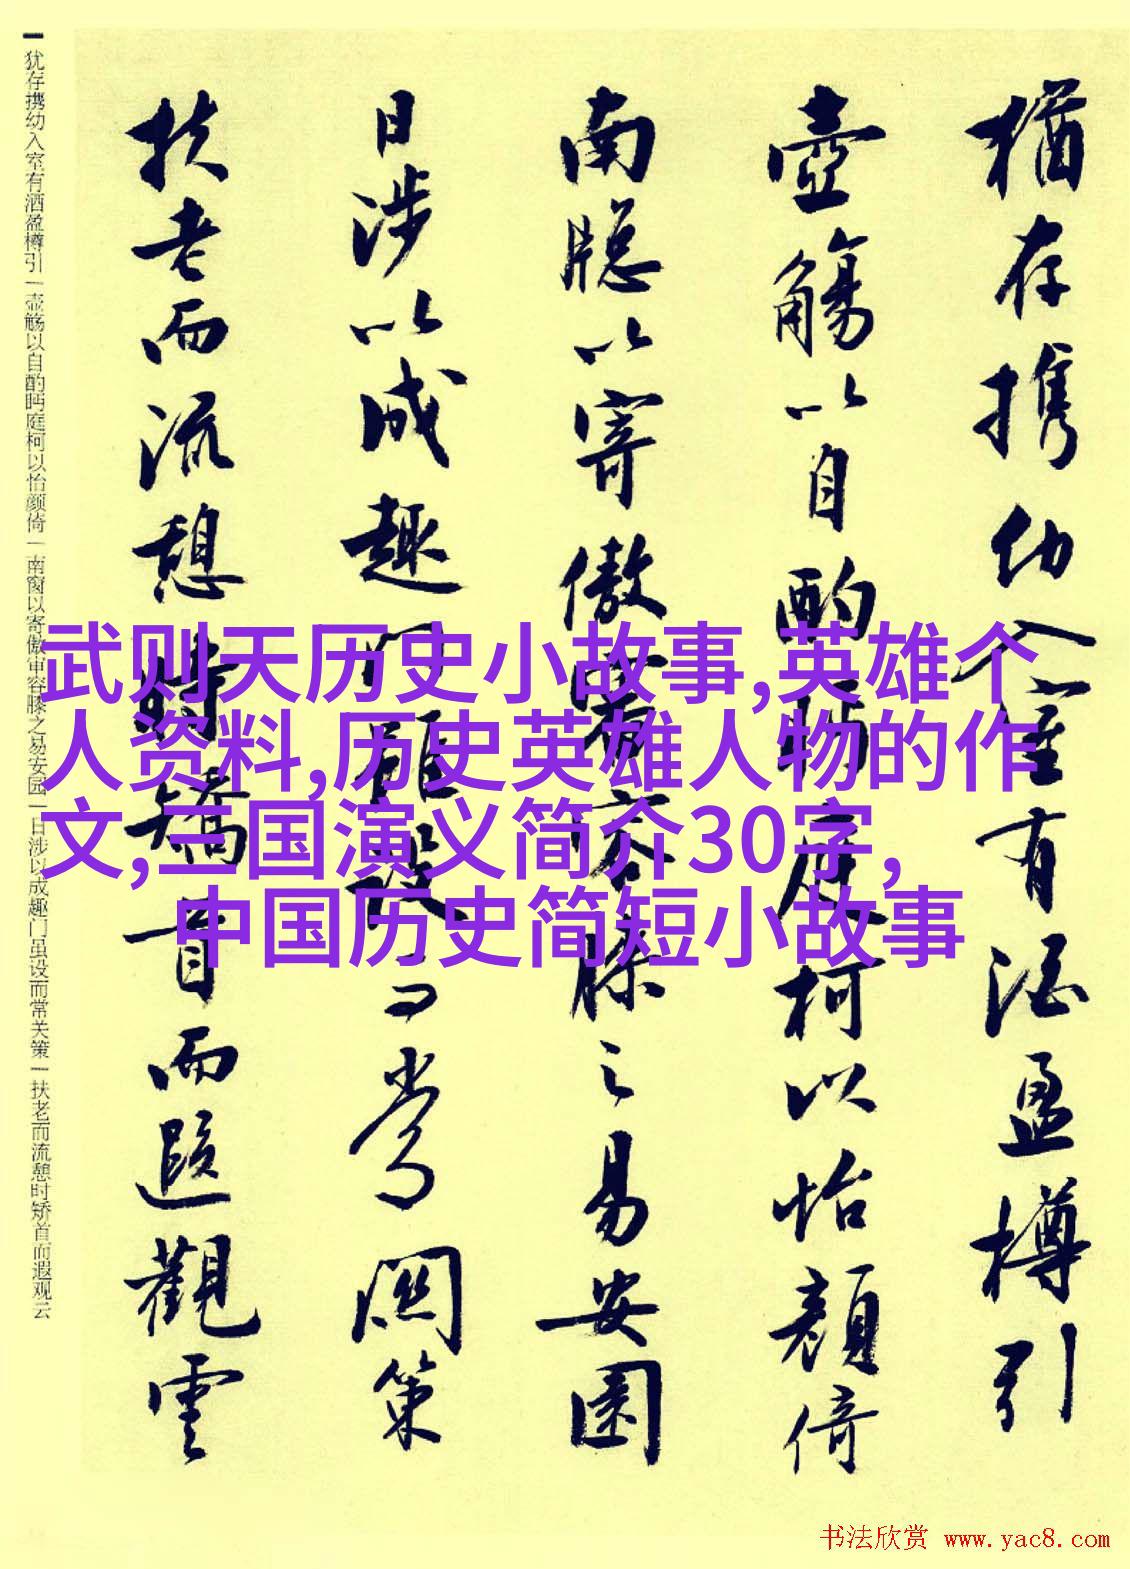 猶存携幼入室有酒盈樽引
壺觴以自酌眄庭柯以怡顔倚
南牕以寄傲審容膝之易安園
日涉以成趣门雖設而常関策
扶老而流憩時矯首而遐觀雲
犹存携幼入室有酒盈樽引一壶觞以自酌眄庭柯以怡颜倚一南窗以寄傲审容膝之易安园一日涉以成趣门虽设而常关策一扶老而流憩时矫首而遐观云
武则天历史小故事,英雄个
人资料,历史英雄人物的作
文,三国演义简介30字,
中国历史简短小故事
书法欣赏 www.yac8.com